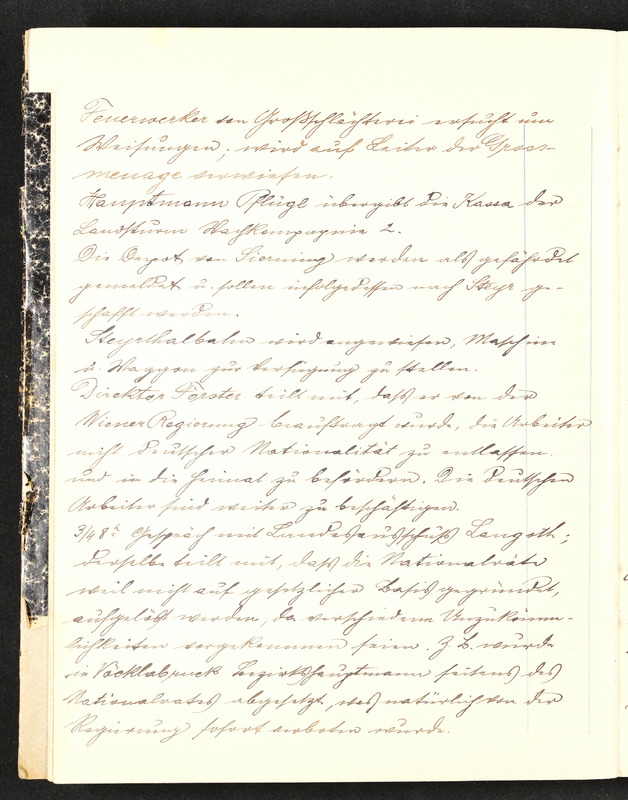 Feuerwerker von Großschlächterei ersucht um
Weisungen; wird auf Leiter der Gross-
menage verwiesen.
Hauptmann Pflügl übergibt die Kassa der
Landsturm Wachkompagnie 2.
Die Depot von Sierning werden als gefährdet
gemeldet u. sollen infolgedessen nach Steyr ge-
schafft werden.
Steyrthalbahn wird angewiesen, Maschine
u. Waggon zur Verfügung zu stellen.
Direktor Förster teilt mit, daß er von der
Wiener Regierung beauftragt wurde, die Arbeiter
nicht deutscher Nationalität zu entlassen
und in die Heimat zu befördern. Die deutschen
Arbeiter sind weiter zu beschäftigen.
3/48h Gespräch mit Landesausschuß Langoth;
derselbe teilt mit, daß die Nationalräte
weil nicht auf gesetzlicher Basis gegründet,
aufgelöst werden, da verschiedene Unzukömm-
lichkeiten vorgekommen seien. Z. B. wurde
in Vöcklabruck Bezirkshauptmann seitens des
Nationalrates abgesetzt, was natürlich von der
Regierung sofort verboten wurde.